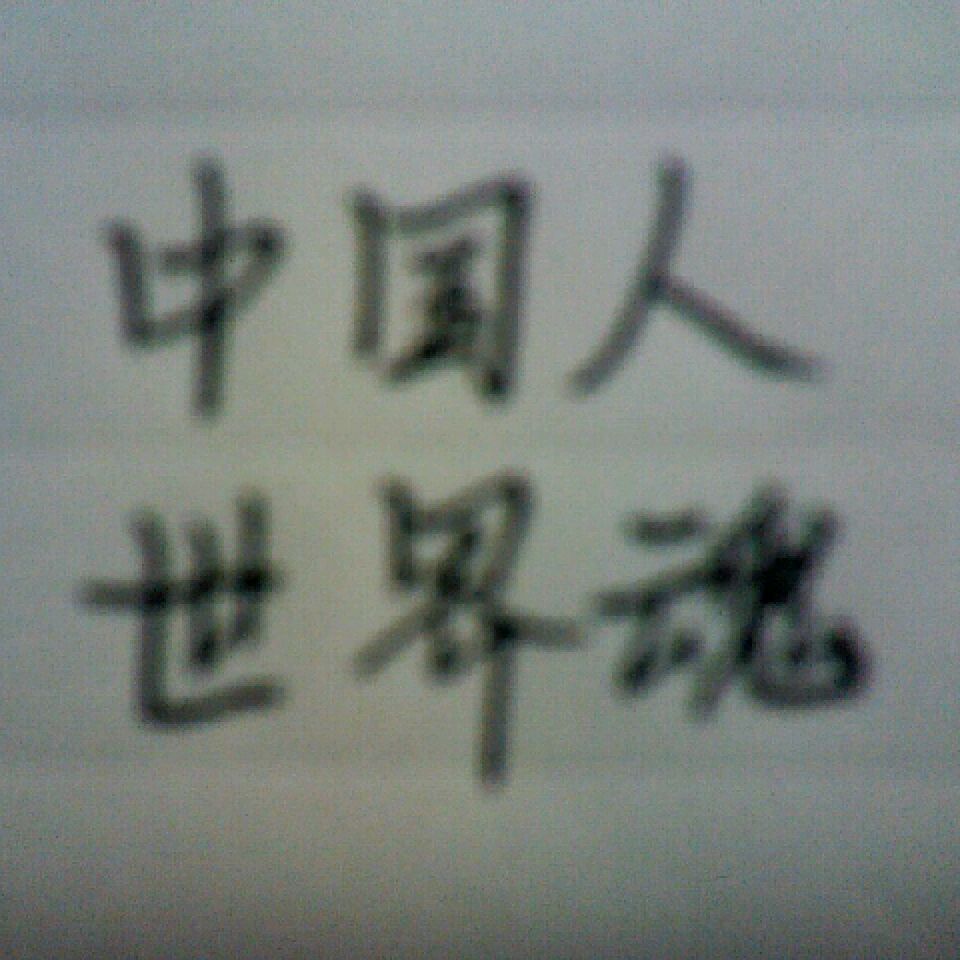 中国人
世界魂